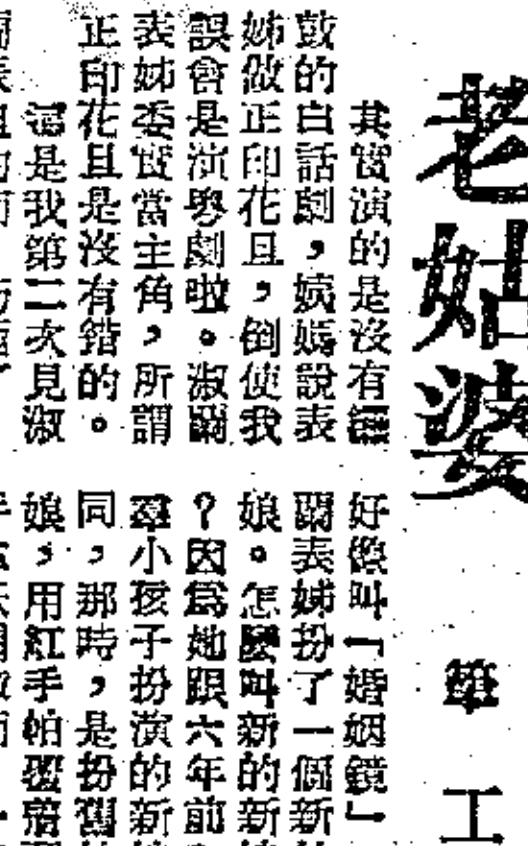 老姑婆
工
其實演的是沒有鑼
鼓的白話劇，姨媽說表
姊做正印花旦，倒使我
誤會是演粵劇啦。淑嫻
表姊委實當主角，所謂
正印花旦是沒有錯的。
這是我第二次見淑
好像叫「婚姻鏡」
嫻表姊扮了一個新
娘。怎麼叫新的新
？因爲她跟六年前
羣小孩子扮演的新
同，那時，是扮舊
娘，用紅手帕